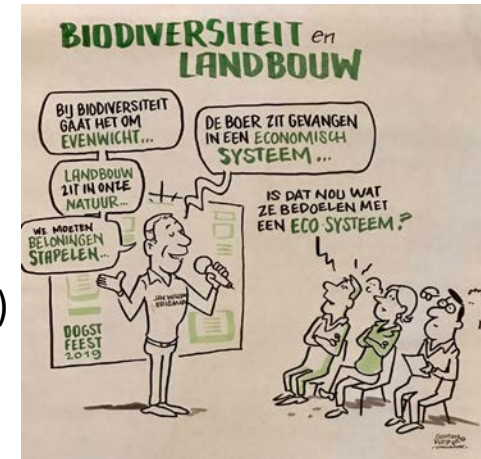 BIODIVERSITEIT en
LANDBOUW
BIJ BIODIVERSITEIT
GAAT HET OM
EVENWICHT...
LANDBOUW
ZIT IN ONZE
NATUUR...
WE MOETEN
BELONINGEN
STAPELEN...
DE BOER ZIT GEVANGEN
IN EEN ECONOMISCH
SYSTEEM...
IS DAT NOU WAT
ZE BEDOELEN MET
EEN ECO-SYSTEEM?
JAN WILLEM
ERISMAN
OOGST
FEEST
2019
)